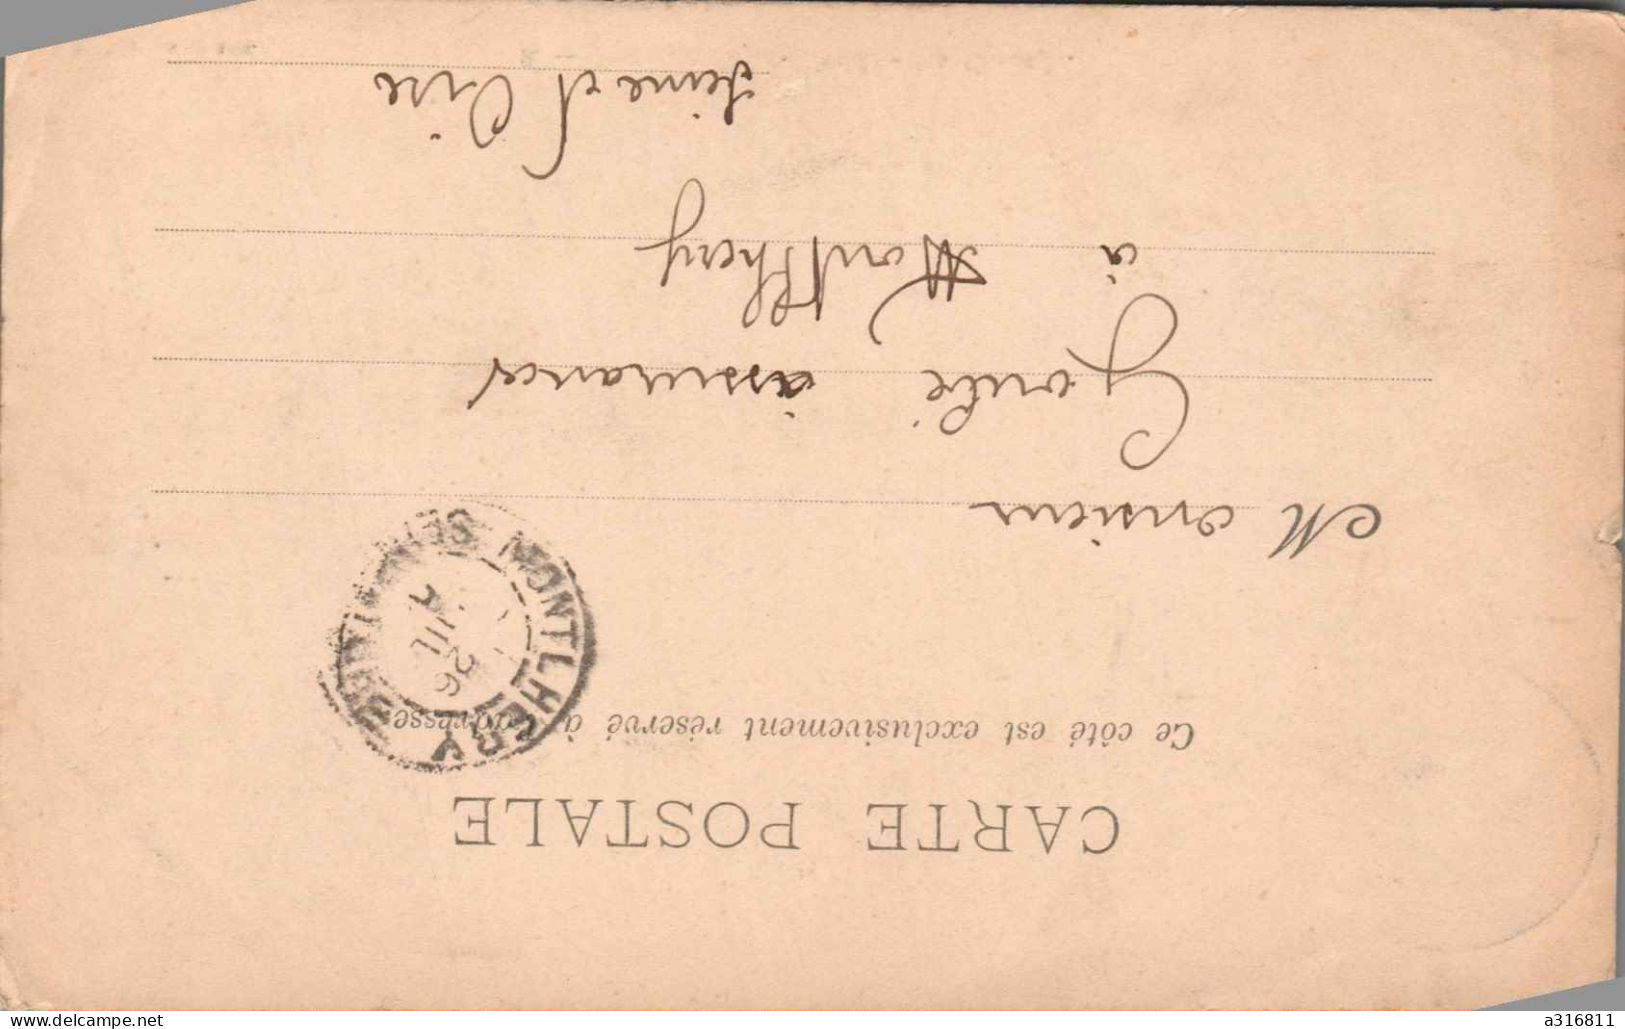 CARTE POSTALE
Ce côté est exclusivement réservé à l'adresse
MONTLHERY
26 JUIL
Monsieur
assurances
à Montlhery
Seine et Oise
www.delcampe.net
a316811